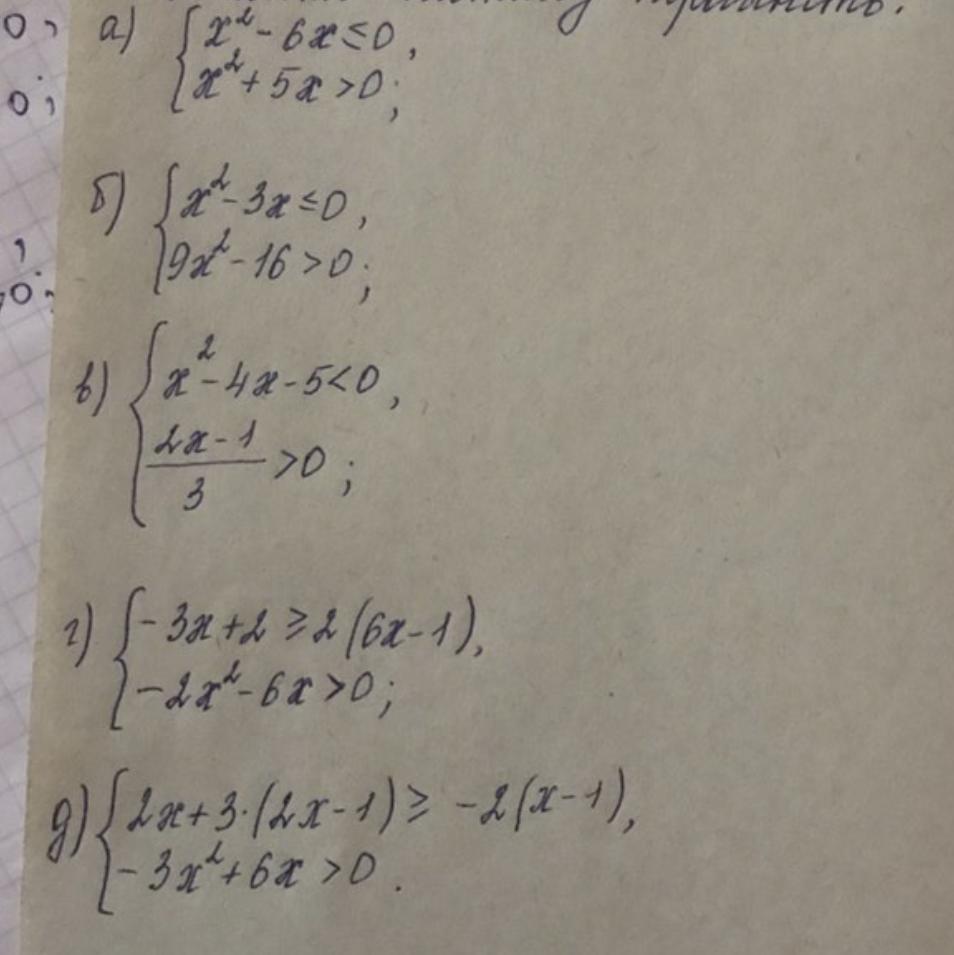 а) { x² - 6x ≤ 0,
x² + 5x > 0;
б) { x² - 3x ≤ 0,
9x² - 16 > 0;
в) { x² - 4x - 5 < 0,
2x - 1
3 > 0;
г) { - 3x + 2 ≥ 2(6x - 1),
- 2x² - 6x > 0;
д) { 2x + 3·(2x - 1) ≥ -2(x - 1),
- 3x² + 6x > 0.